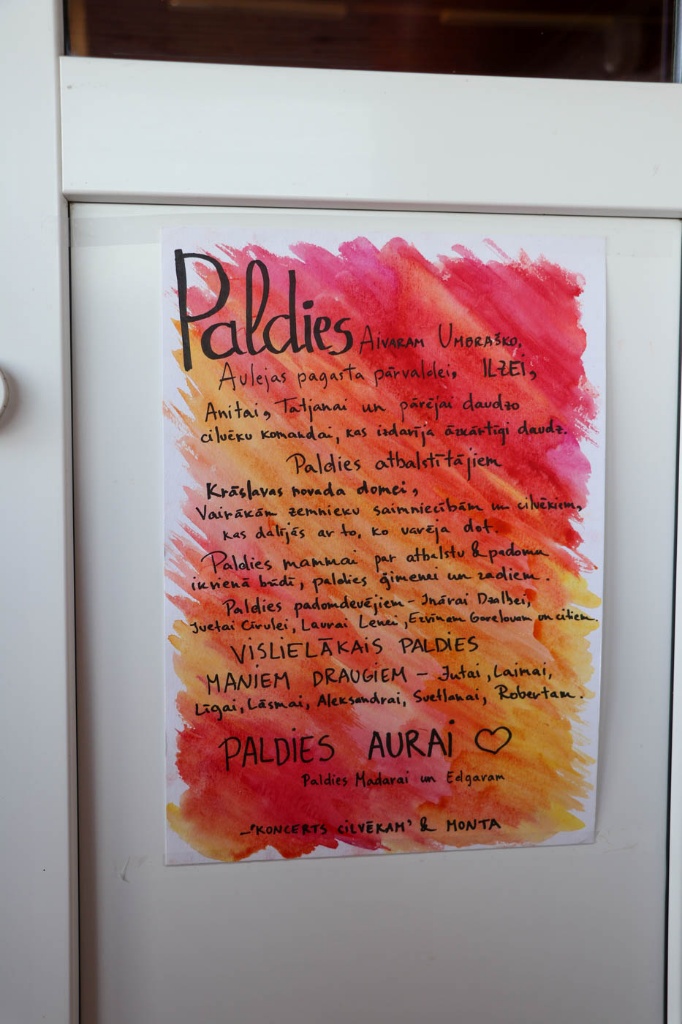 Paldies Aivaram Umbraško,
Aulejas pagasta pārvaldei, ILZEI,
Anitai, Tatjanai un pārējai daudzo
cilvēku komandai, kas izdarīja ārkārtīgi daudz.
Paldies atbalstītājiem
Krāslavas novada domei,
Vairākām zemnieku saimniecībām un cilvēkiem,
kas dalījās ar to, ko varēja dot.
Paldies mammai par atbalstu & padomu
ikvienā brīdī, paldies ģimenei un radiem.
Paldies padomdevējiem – Inārai Dzalbei,
Ivetai Cīrulei, Laurai Lencei, Ervinam Gorelovam un citiem.
VISLIELĀKAIS PALDIES
MANIEM DRAUGIEM – Jutai, Laimai,
Līgai, Lāsmai, Aleksandrai, Svetlanai, Robertam.
PALDIES AURAI ♡
Paldies Madarai un Edgaram
–"KONCERTS CILVĒKAM" & MONTA